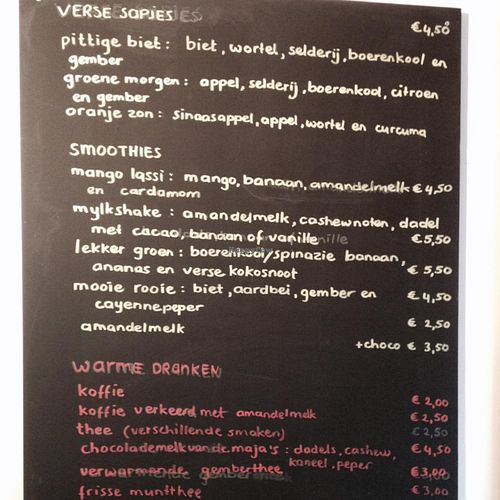 VERSE SAPJES €4,50
pittige biet: biet, wortel, selderij, boerenkool en
gember
groene morgen: appel, selderij, boerenkool, citroen
en gember
oranje zon: sinaasappel, appel, wortel en curcuma
SMOOTHIES
mango lassi: mango, banaan, amandelmelk €4,50
en cardamom
mylkshake: amandelmelk, cashewnoten, dadel
met cacao, banaan of vanille €5,50
lekker groen: boerenkool/spinazie banaan,
ananas en verse kokosnoot €5,50
mooie rooie: biet, aardbei, gember en €4,50
cayennepeper
amandelmelk €2,50
+choco €3,50
WARME DRANKEN
koffie €2,00
koffie verkeerd met amandelmelk €2,50
thee (verschillende smaken) €2,50
chocolademelk van de maja's: dadels, cashew, €4,50
kaneel, peper
verwarmende gemberthee €3,00
frisse muntthee €3,00